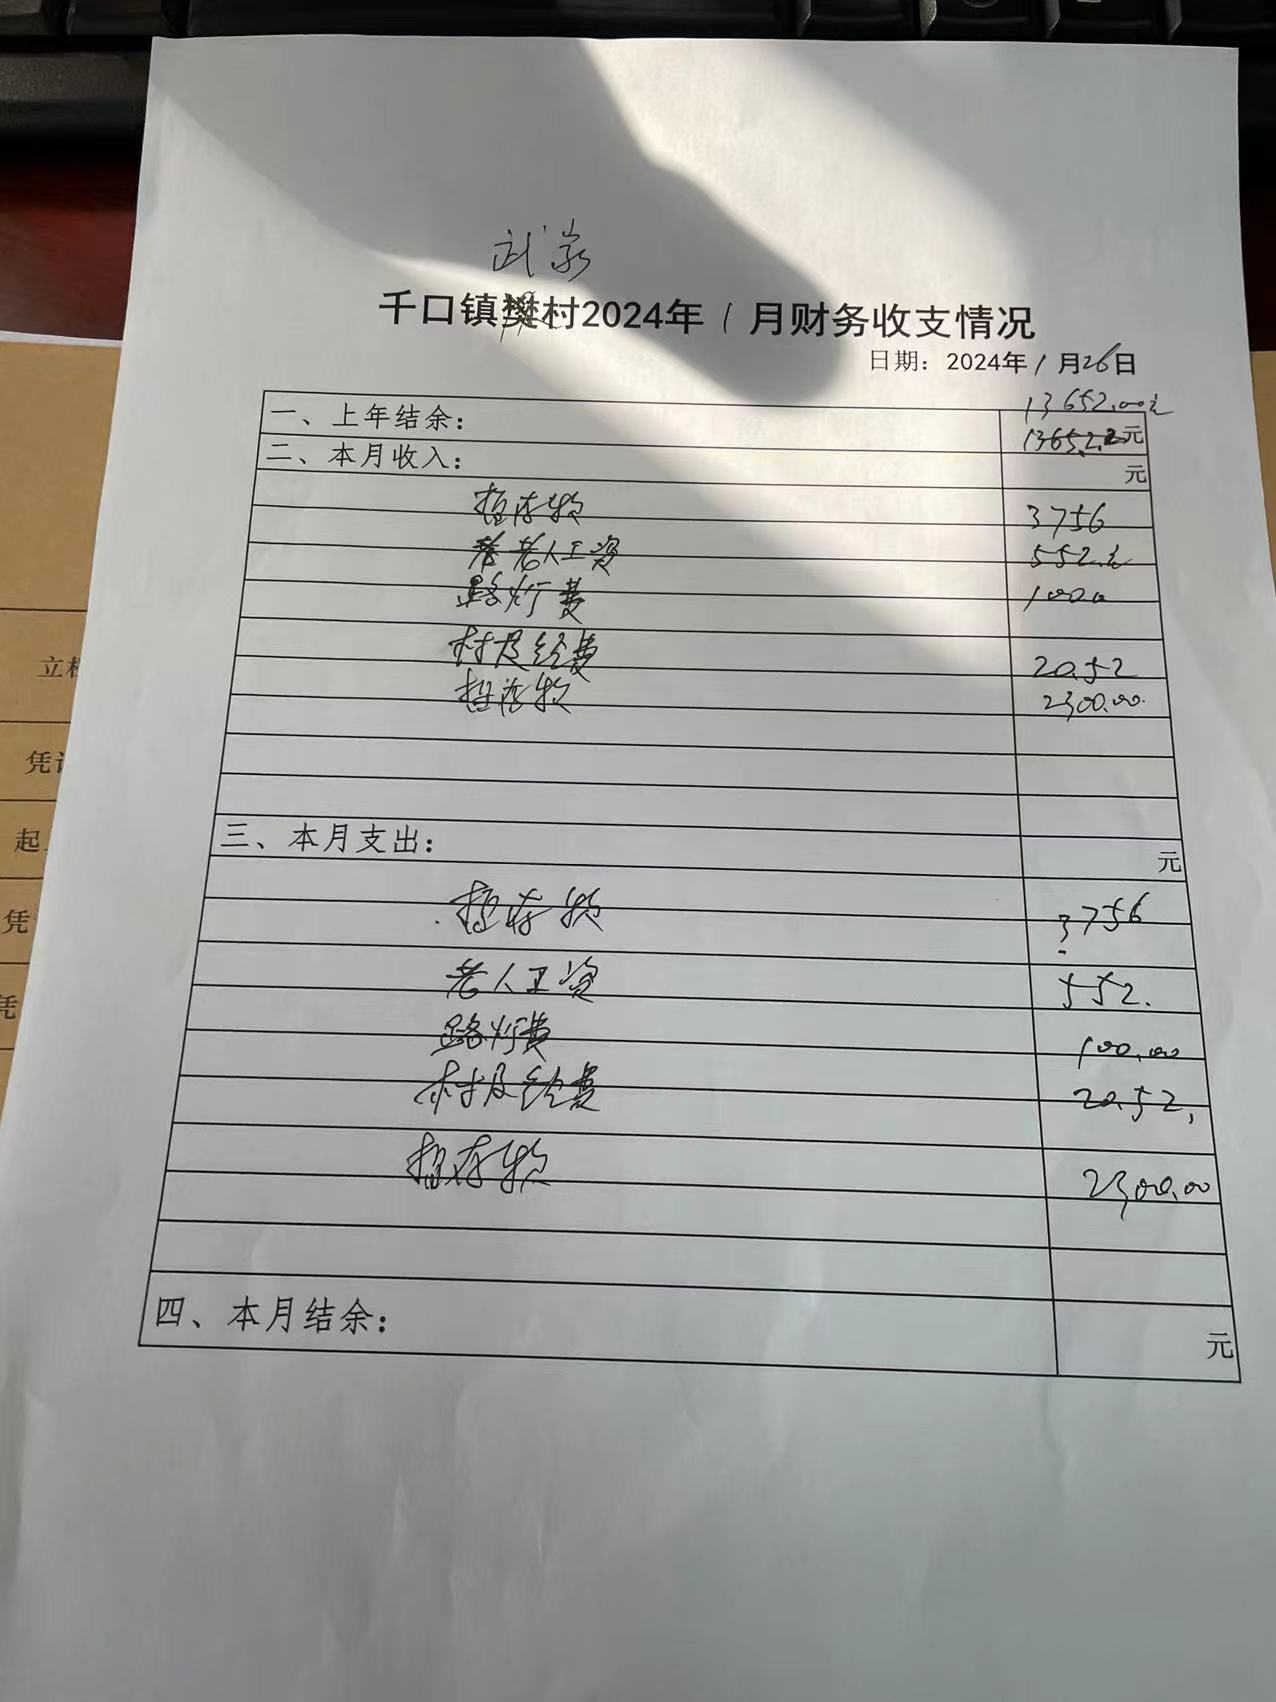 武家
千口镇樊村2024年1月财务收支情况
日期：2024年1月26日
13652.00元
一、上年结余： 13652.2元
二、本月收入： 元
3756
老人工资 552.元
路灯费 1000
村及经费 2052
2300.00
三、本月支出： 元
3756
老人工资 552.
路灯费 100.00
村及经费 2052.
2300.00
四、本月结余： 元
立档
凭证
起
凭
凭